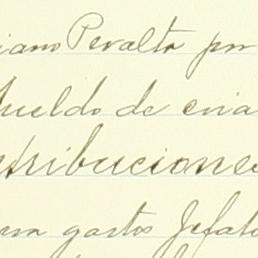 iano Peralta por
sueldo de cria
tribuciones
gastos Jefat